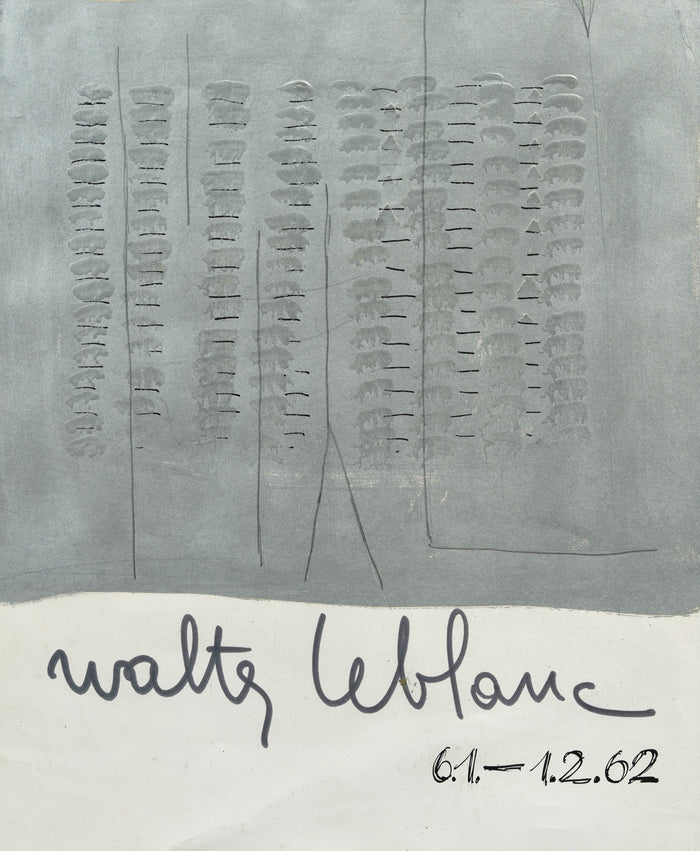 walter leblanc
6.1.—1.2.62